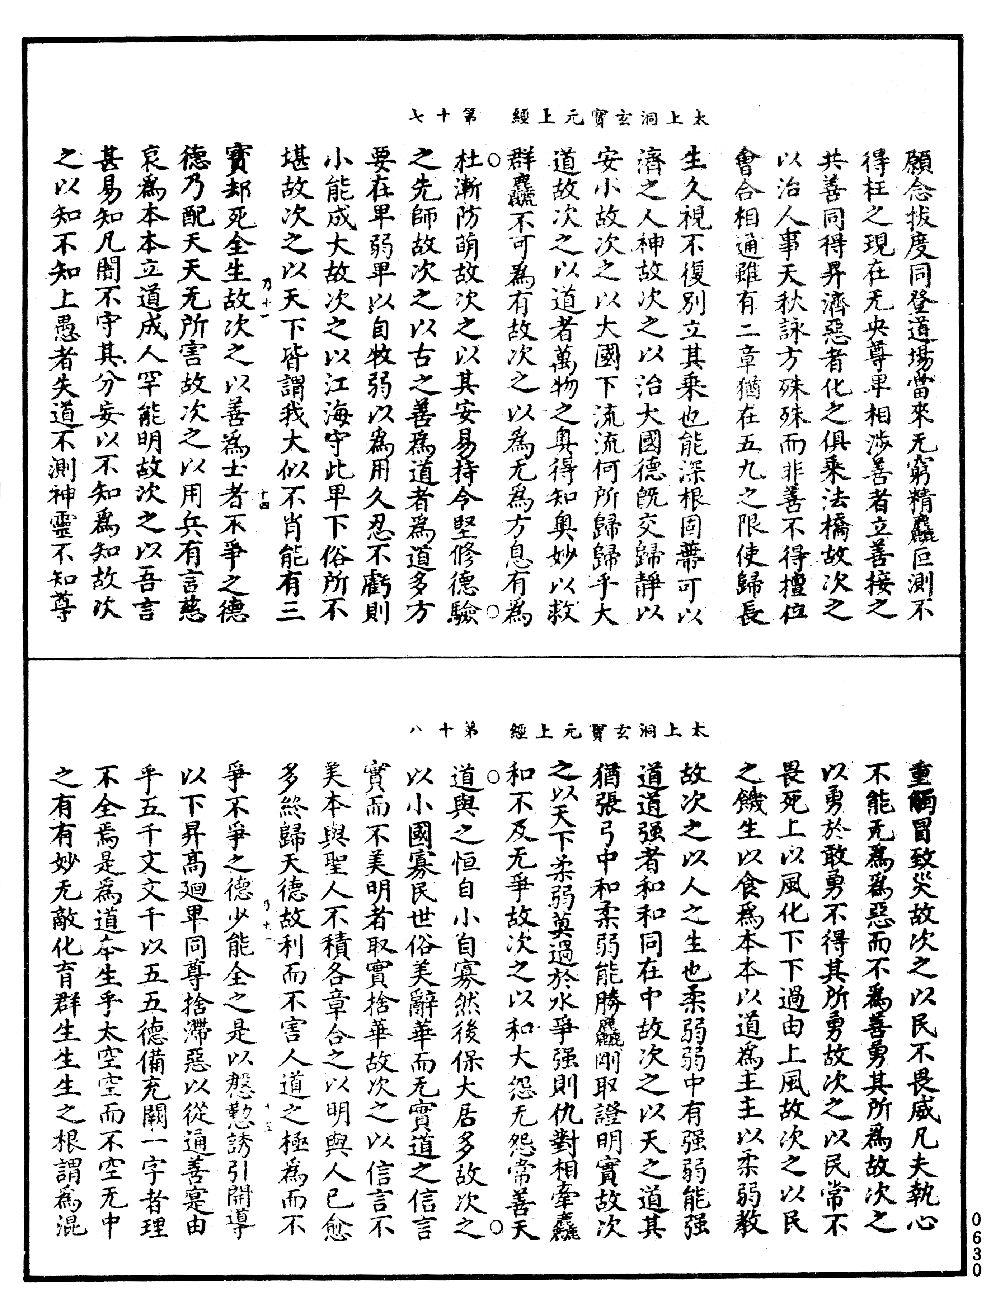 太上洞玄寶元上經 第十七
願念拔度同登道場當來无窮精麤叵測不
得枉之現在无央尊卑相涉善者立善接之
共善同得昇濟惡者化之俱乘法橋故次之
以治人事天秋詠方殊殊而非善不得擅位
會合相通雖有二章猶在五九之限使歸長
生久視不復別立其乘也能深根固蔕可以
濟之人神故次之以治大國德既交歸靜以
安小故次之以大國下流流何所歸歸乎大
道故次之以道者萬物之奧得知奧妙以救
群麤不可為有故次之以為无為方息有為
杜漸防萌故次之以其安易持令堅修德驗
之先師故次之以古之善為道者為道多方
要在卑弱卑以自牧弱以為用久忍不虧則
小能成大故次之以江海守此卑下俗所不
堪故次之以天下皆謂我大似不肖能有三
乃十一 十四
寶却死全生故次之以善為士者不爭之德
德乃配天天无所害故次之以用兵有言慈
哀為本本立道成人罕能明故次之以吾言
甚易知凡闇不守其分妄以不知為知故次
之以知不知上愚者失道不測神靈不知尊
太上洞玄寶元上經 第十八
重觸冒致災故次之以民不畏威凡夫執心
不能无為為惡而不為善勇其所為故次之
以勇於敢勇不得其所勇故次之以民常不
畏死上以風化下下過由上風故次之以民
之饑生以食為本本以道為主主以柔弱教
故次之以人之生也柔弱弱中有强弱能强
道道强者和和同在中故次之以天之道其
猶張弓中和柔弱能勝麤剛取證明實故次
之以天下柔弱莫過於水爭强則仇對相牽麤
和不及无爭故次之以和大怨无怨常善天
道與之恒自小自寡然後保大居多故次之
以小國寡民世俗美辭華而无實道之信言
實而不美明者取實捨華故次之以信言不
美本與聖人不積各章合之以明與人已愈
多終歸天德故利而不害人道之極為而不
乃十一 十五
爭不爭之德少能全之是以慇懃誘引開導
以下昇高廻卑同尊捨滯惡以從通善寔由
乎五千文文千以五五德備充闕一字者理
不全焉是為道本生乎太空空而不空无中
之有有妙无敵化育群生生生之根謂為混
0630